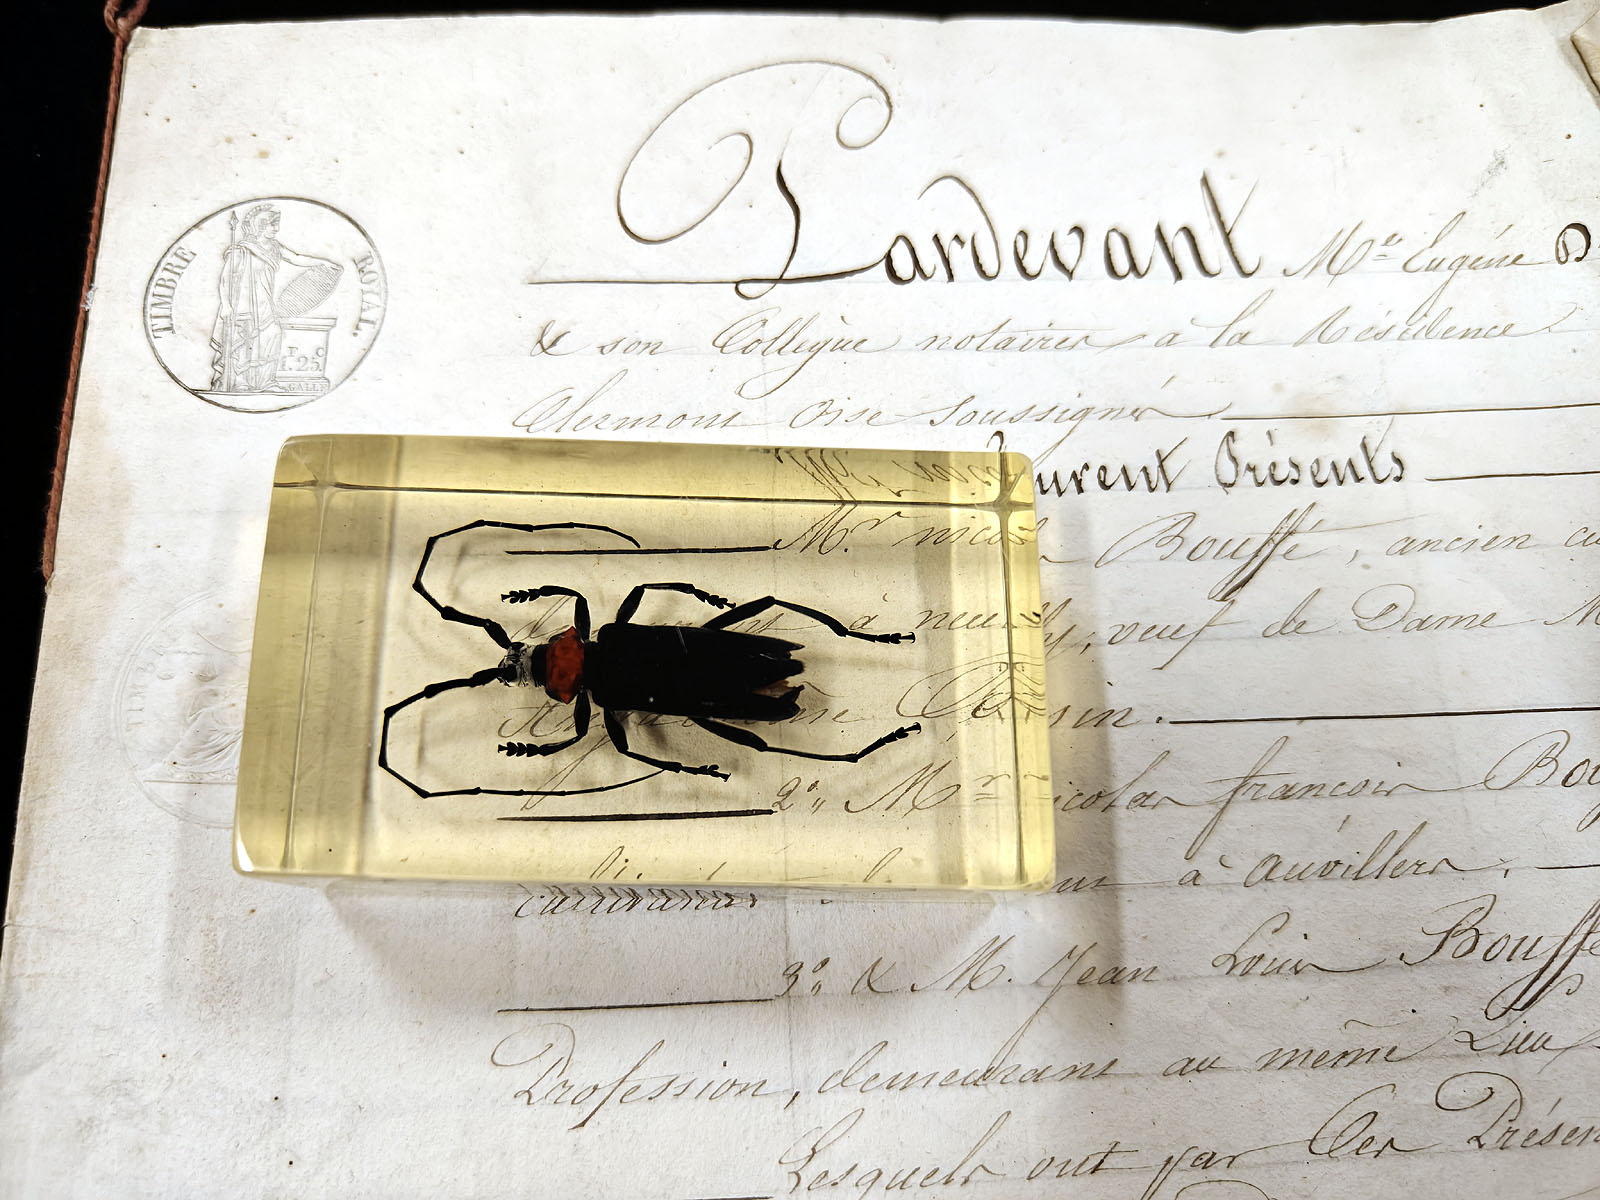 TIMBRE ROYAL.
F. C
1.25
GALLE
Pardevant Me Eugène
& son Collègue notaires à la Résidence
Clermont Oise soussignés
furent Présents
Mr Bouffé, ancien
à neuilly, veuf de Dame
2° Mr nicolas francois
à Auvillers,
3° & M. Jean Louis Bouffé
Profession, demeurant au même Lieu
Lesquels ont par Ces Présen